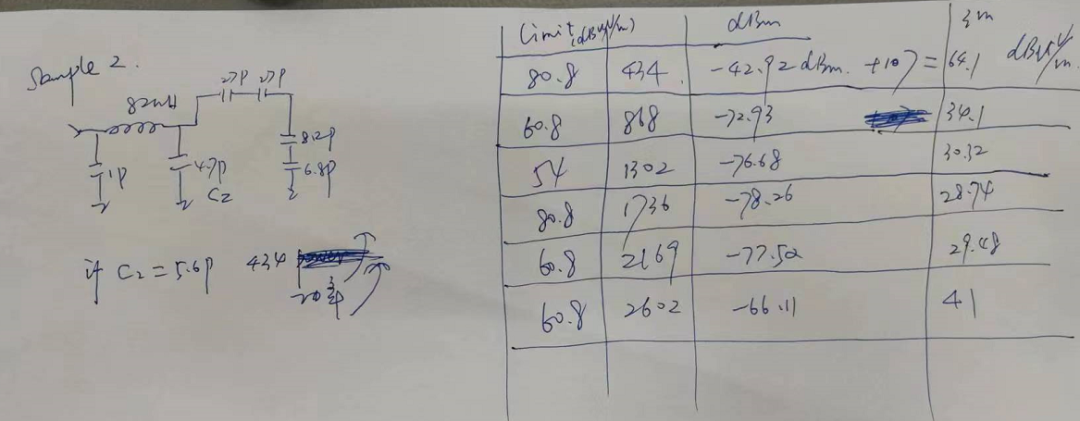 Sample 2.
27P 27P
82nH
8.2P
1P 4.7P 6.8P
C2
if C2 = 5.6P 434
Limit (dBuV/m) dBm 3m
80.8 434 -42.92 dBm. +107 = 64.1 dBuV/m.
60.8 868 -72.93 34.1
54 1302 -76.68 30.32
80.8 1736 -78.26 28.74
60.8 2169 -77.52 29.48
60.8 2602 -66.11 41